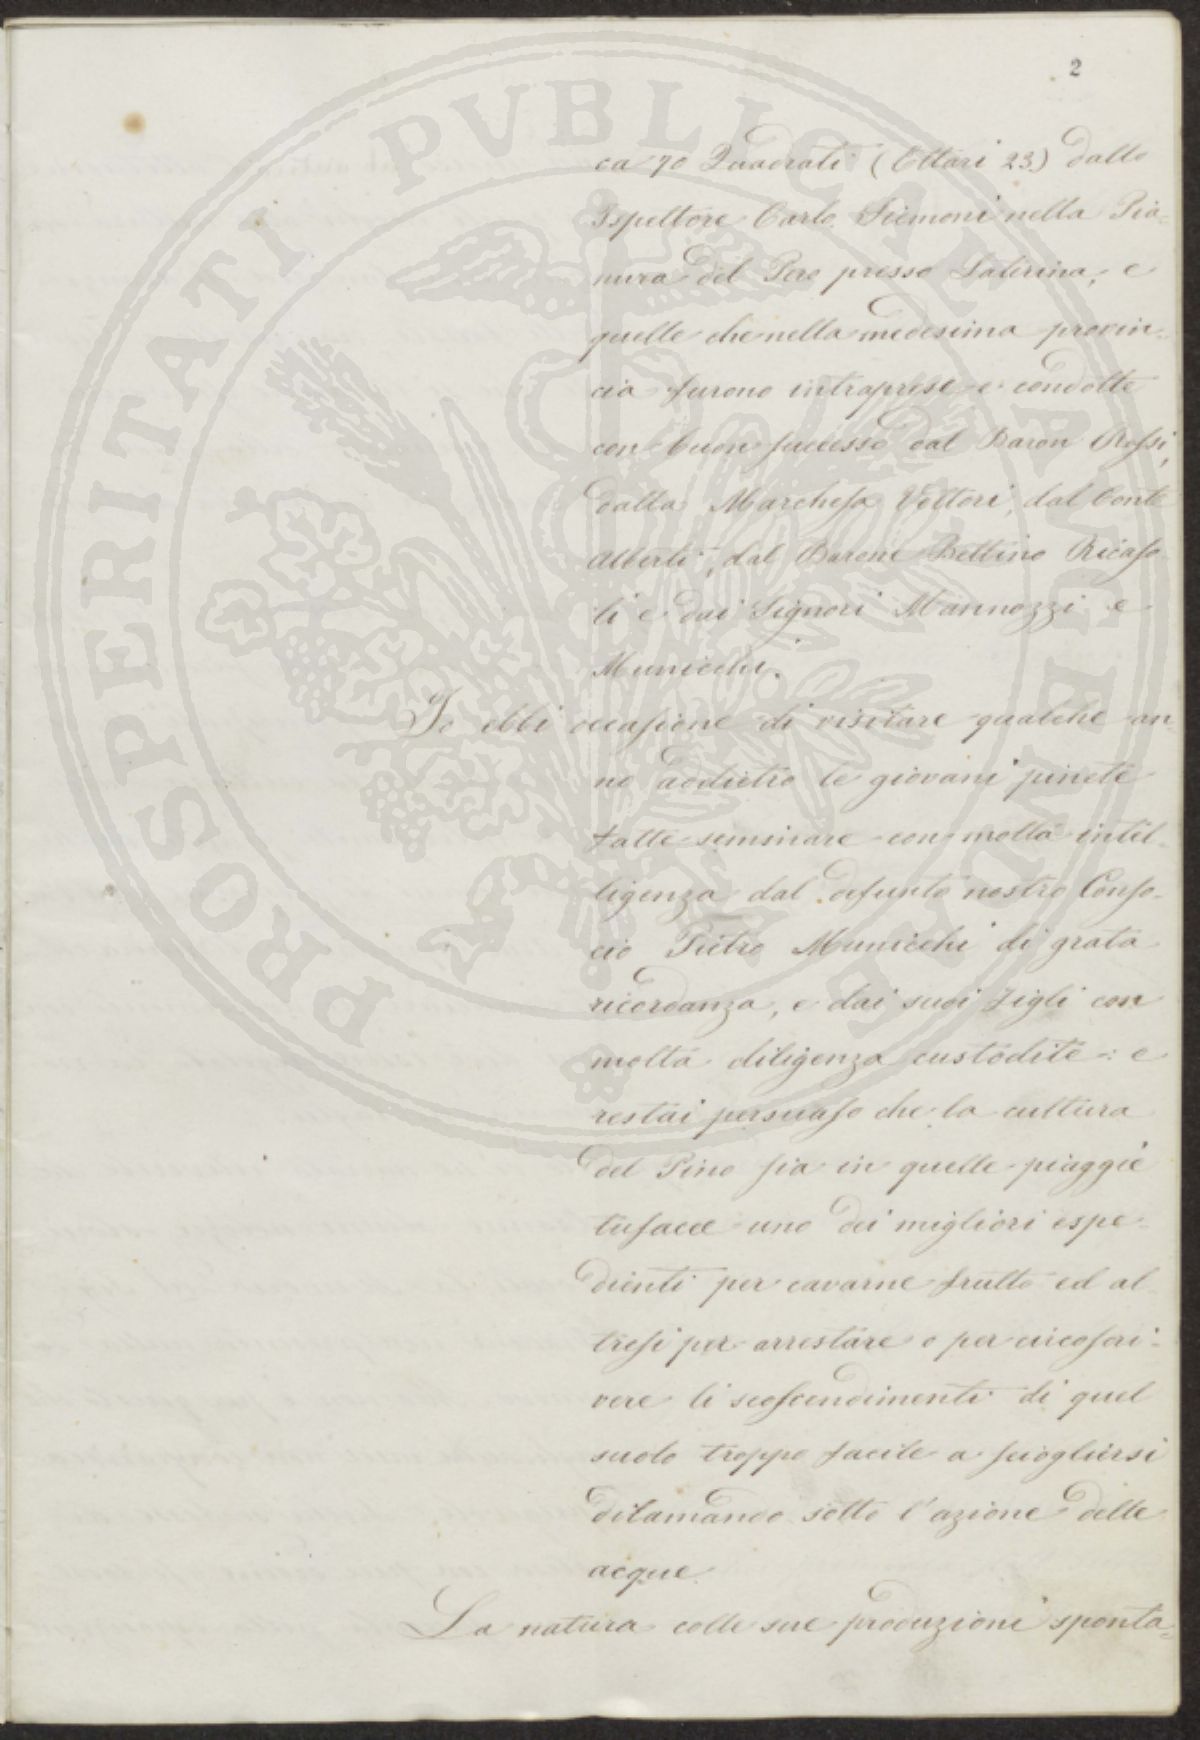 2
ca 70 Quadrati (Ettari 23) dallo
Ispettore Carlo Siemoni nella Pia-
nura del Pero presso Laterina, e
quelle che nella medesima provin-
cia furono intraprese e condotte
con buon successo dal Baron Rossi,
dalla Marchesa Vettori, dal Conte
Alberti, dal Barone Bettino Ricaso
li e dai Signori Mannozzi e
Municchi.
Io ebbi occasione di visitare qualche an-
no addietro le giovani pinete
fatte seminare con molta intel-
ligenza dal defunto nostro Conso-
cio Pietro Municchi di grata
ricordanza, e dai suoi figli con
molta diligenza custodite: e
restai persuaso che la cultura
del Pino sia in quelle piaggie
tufacee uno dei migliori espe-
dienti per cavarne frutto ed al
tresi per arrestare o per circoscri-
vere li scoscendimenti di quel
suolo troppo facile a sciogliersi
dilamando sotto l'azione delle
acque.
La natura colle sue produzioni sponta-
PROSPERITATI PVBLICAE AVGENDAE